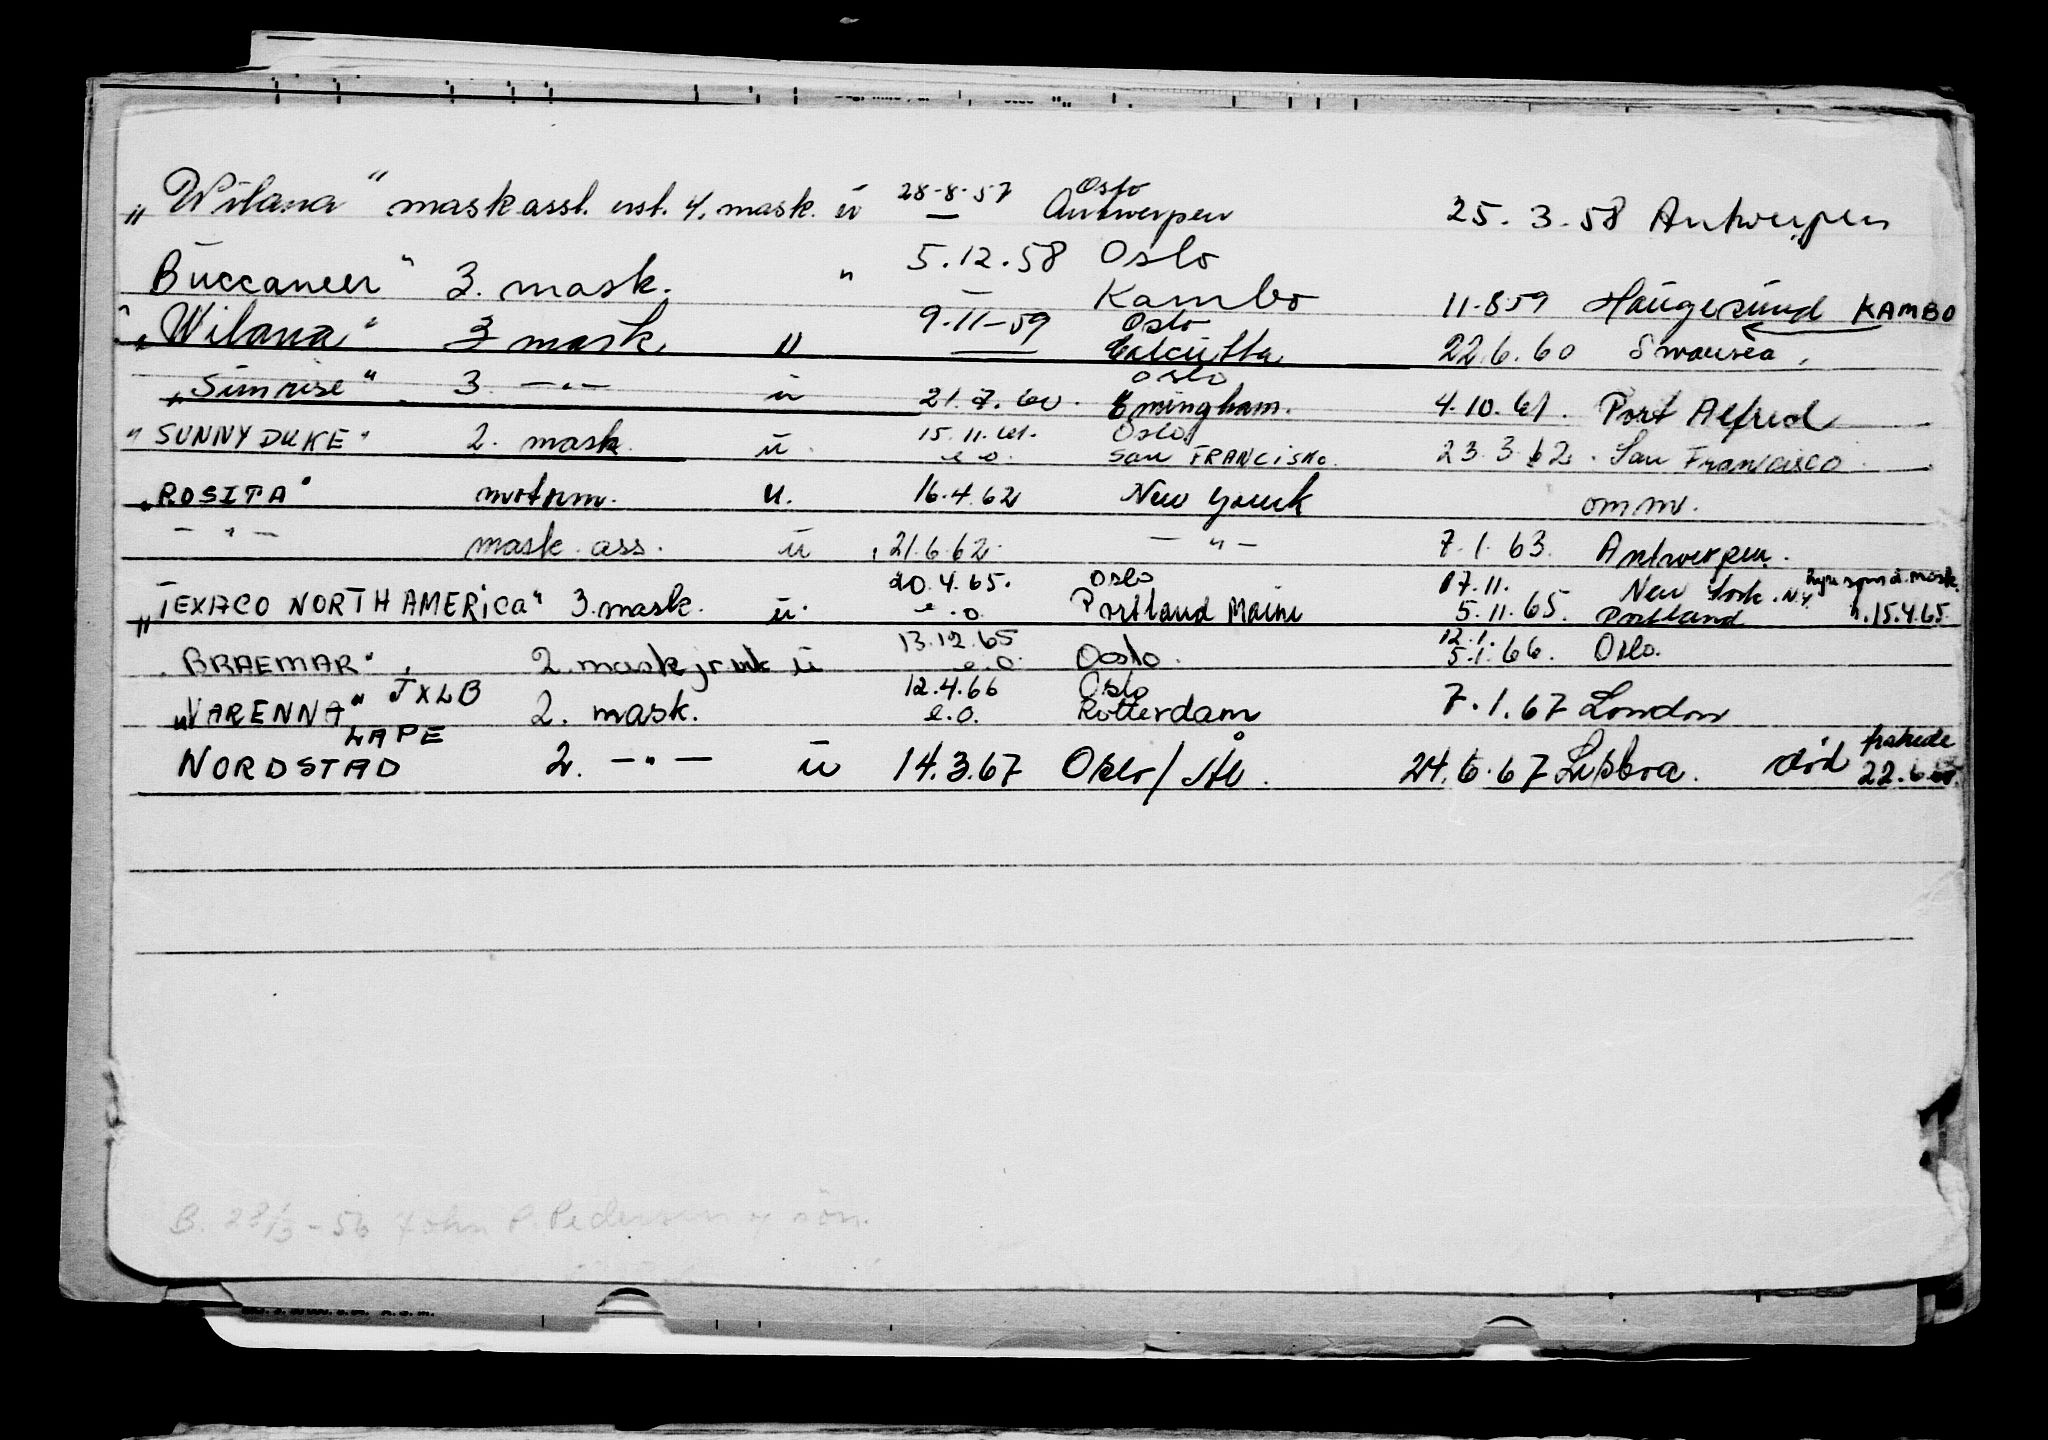 „Wilana" maskasst. ust. 4. mask. ü 28-8-57 Oslo — Antwerpen 25.3.58 Antwerpen
Buccaneer" 3. mask. " 5.12.58 Oslo — Kambo 11-8-59 Haugesund KAMBO
„Wilana" 3 mask " 9-11-59 Oslo — Calcutta 22.6.60 Swansea.
„Sunrise" 3 —"— ü 21.7.60. Oslo Emingham. 4.10.61. Port Alfred
"SUNNY DUKE" 2. mask. ü. 15.11.61. Oslo e.o. San FRANCISKO. 23.3.62. San Francisco
„ROSITA" motorm. u. 16.4.62 New Yourk omm.
—"— mask. ass. ü 21.6.62. —"— 7.1.63. Antwerpen.
„TEXACO NORTH AMERICA" 3. mask. ü. 20.4.65. Oslo e.o. Portland Maine 17.11. New York. N.Y. 5.11.65. Portland hyre som 2. mask. n. 15.4.65.
„BRAEMAR" 2. mask jr. ü 13.12.65 e.o. Oslo. 12.1. 5.1.66. Oslo.
„VARENNA" JXLB 2. mask. 12.4.66 Oslo e.o. Rotterdam 7.1.67 London
NORDSTAD LAPE 2. —"— ü 14.3.67 Oslo/Ål. 24.6.67 Lisboa. død 22.6.
B. 23/3-56 John P. Pedersen & sön.